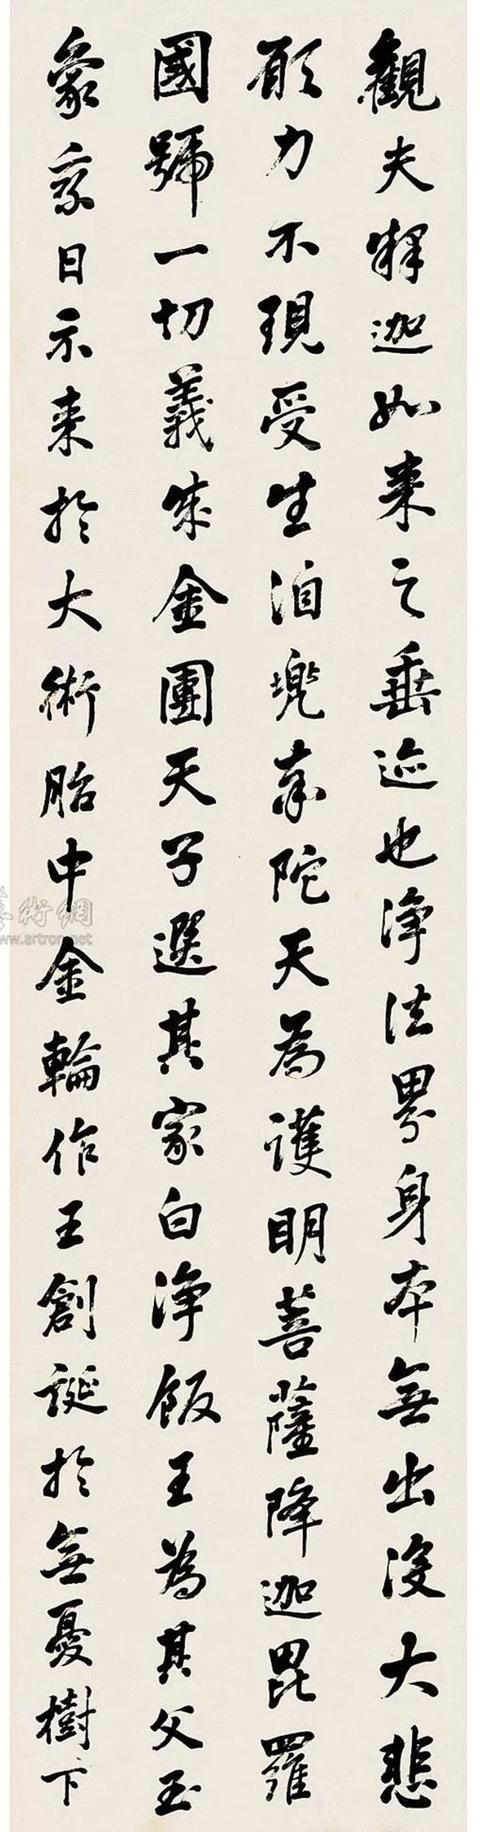 觀夫釋迦如来之垂迹也净法界身本無出没大悲
願力不現受生洎兜率陀天為護明菩薩降迦毘羅
國號一切義成金團天子選其家白净飯王為其父玉
象乘日示来於大術胎中金輪作王創誕於無憂樹下
藝術網
www.artron.net